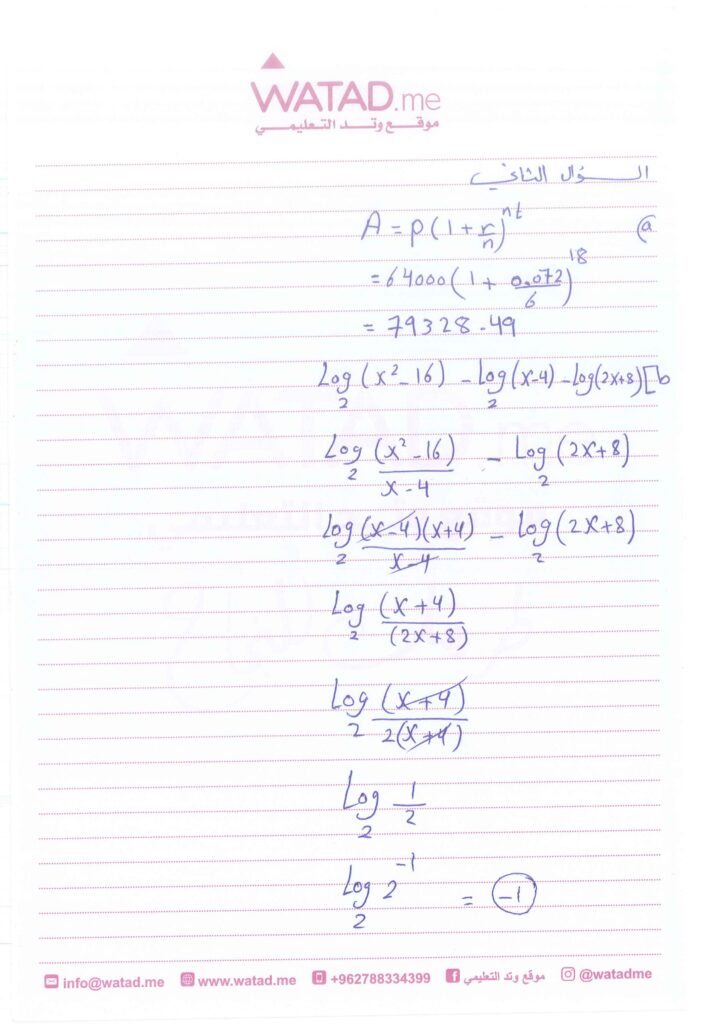 WATAD.me
موقع وتد التعليمي
السؤال الثاني
a) A = P(1 + r/n)^nt
= 64000(1 + 0.072/6)^18
= 79328.49
b] Log₂(x² - 16) - Log₂(x-4) - Log(2x+8)
Log₂ (x² - 16)/(x - 4) - Log₂(2x+8)
Log₂ (x-4)(x+4)/(x-4) - Log₂(2x+8)
Log₂ (x+4)/(2x+8)
Log₂ (x+4)/2(x+4)
Log₂ 1/2
Log₂ 2^-1 = -1
info@watad.me www.watad.me +962788334399 موقع وتد التعليمي @watadme